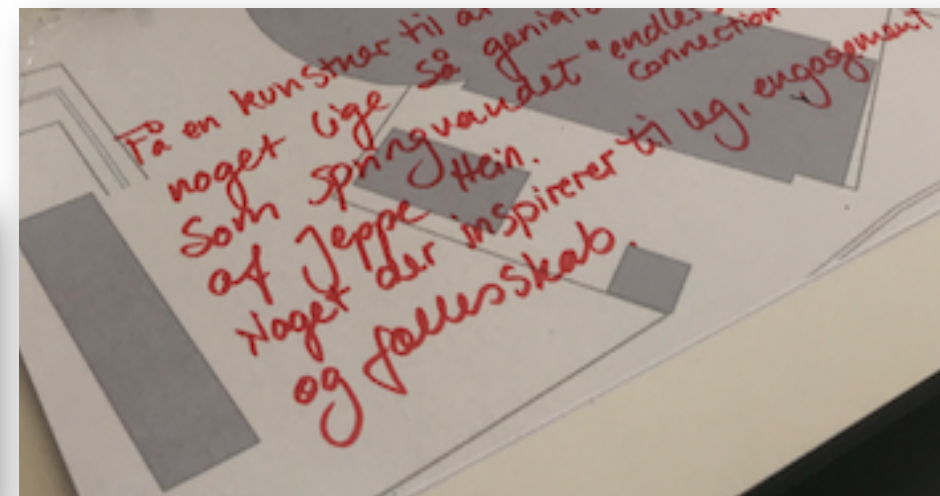 Få en kunstner til at
noget lige så genialt
som springvandet "endless
connection
af Jeppe Hein.
Noget der inspirerer til leg, engagement
og fællesskab.